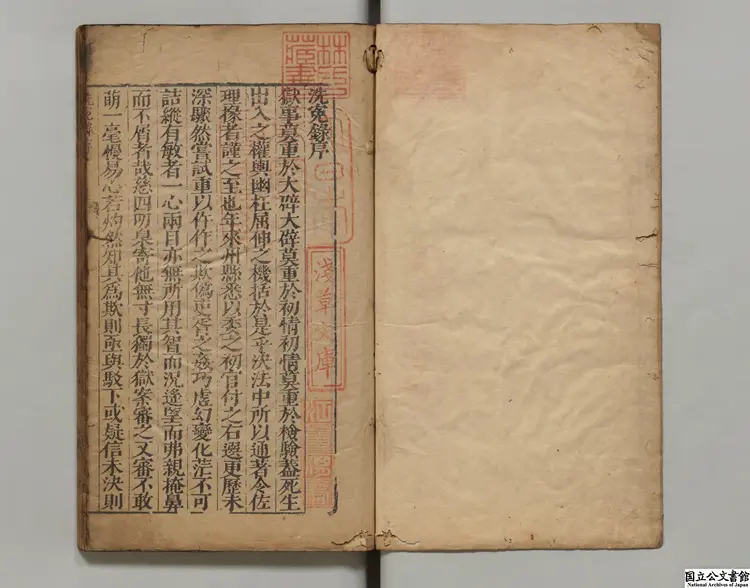 林氏藏書
洗冤錄序
獄事莫重於大辟大辟莫重於初情初情莫重於檢驗蓋死生
出入之權輿幽枉屈伸之機括於是乎決法中所以通著令佐
理掾者謹之至也年來州縣悉以委之初官付之右選更歷未
深驟然嘗試重以仵作之欺僞吏胥之姦巧虛幻變化茫不可
詰縱有敏者一心兩目亦無所用其智而況遙望而弗親掩鼻
而不屑者哉慈四叨臬寄他無寸長獨於獄案審之又審不敢
萌一毫慢易心若灼然知其爲欺則亟與駁下或疑信未決則
淺草文庫
江雲渭樹
国立公文書館
National Archives of Japan